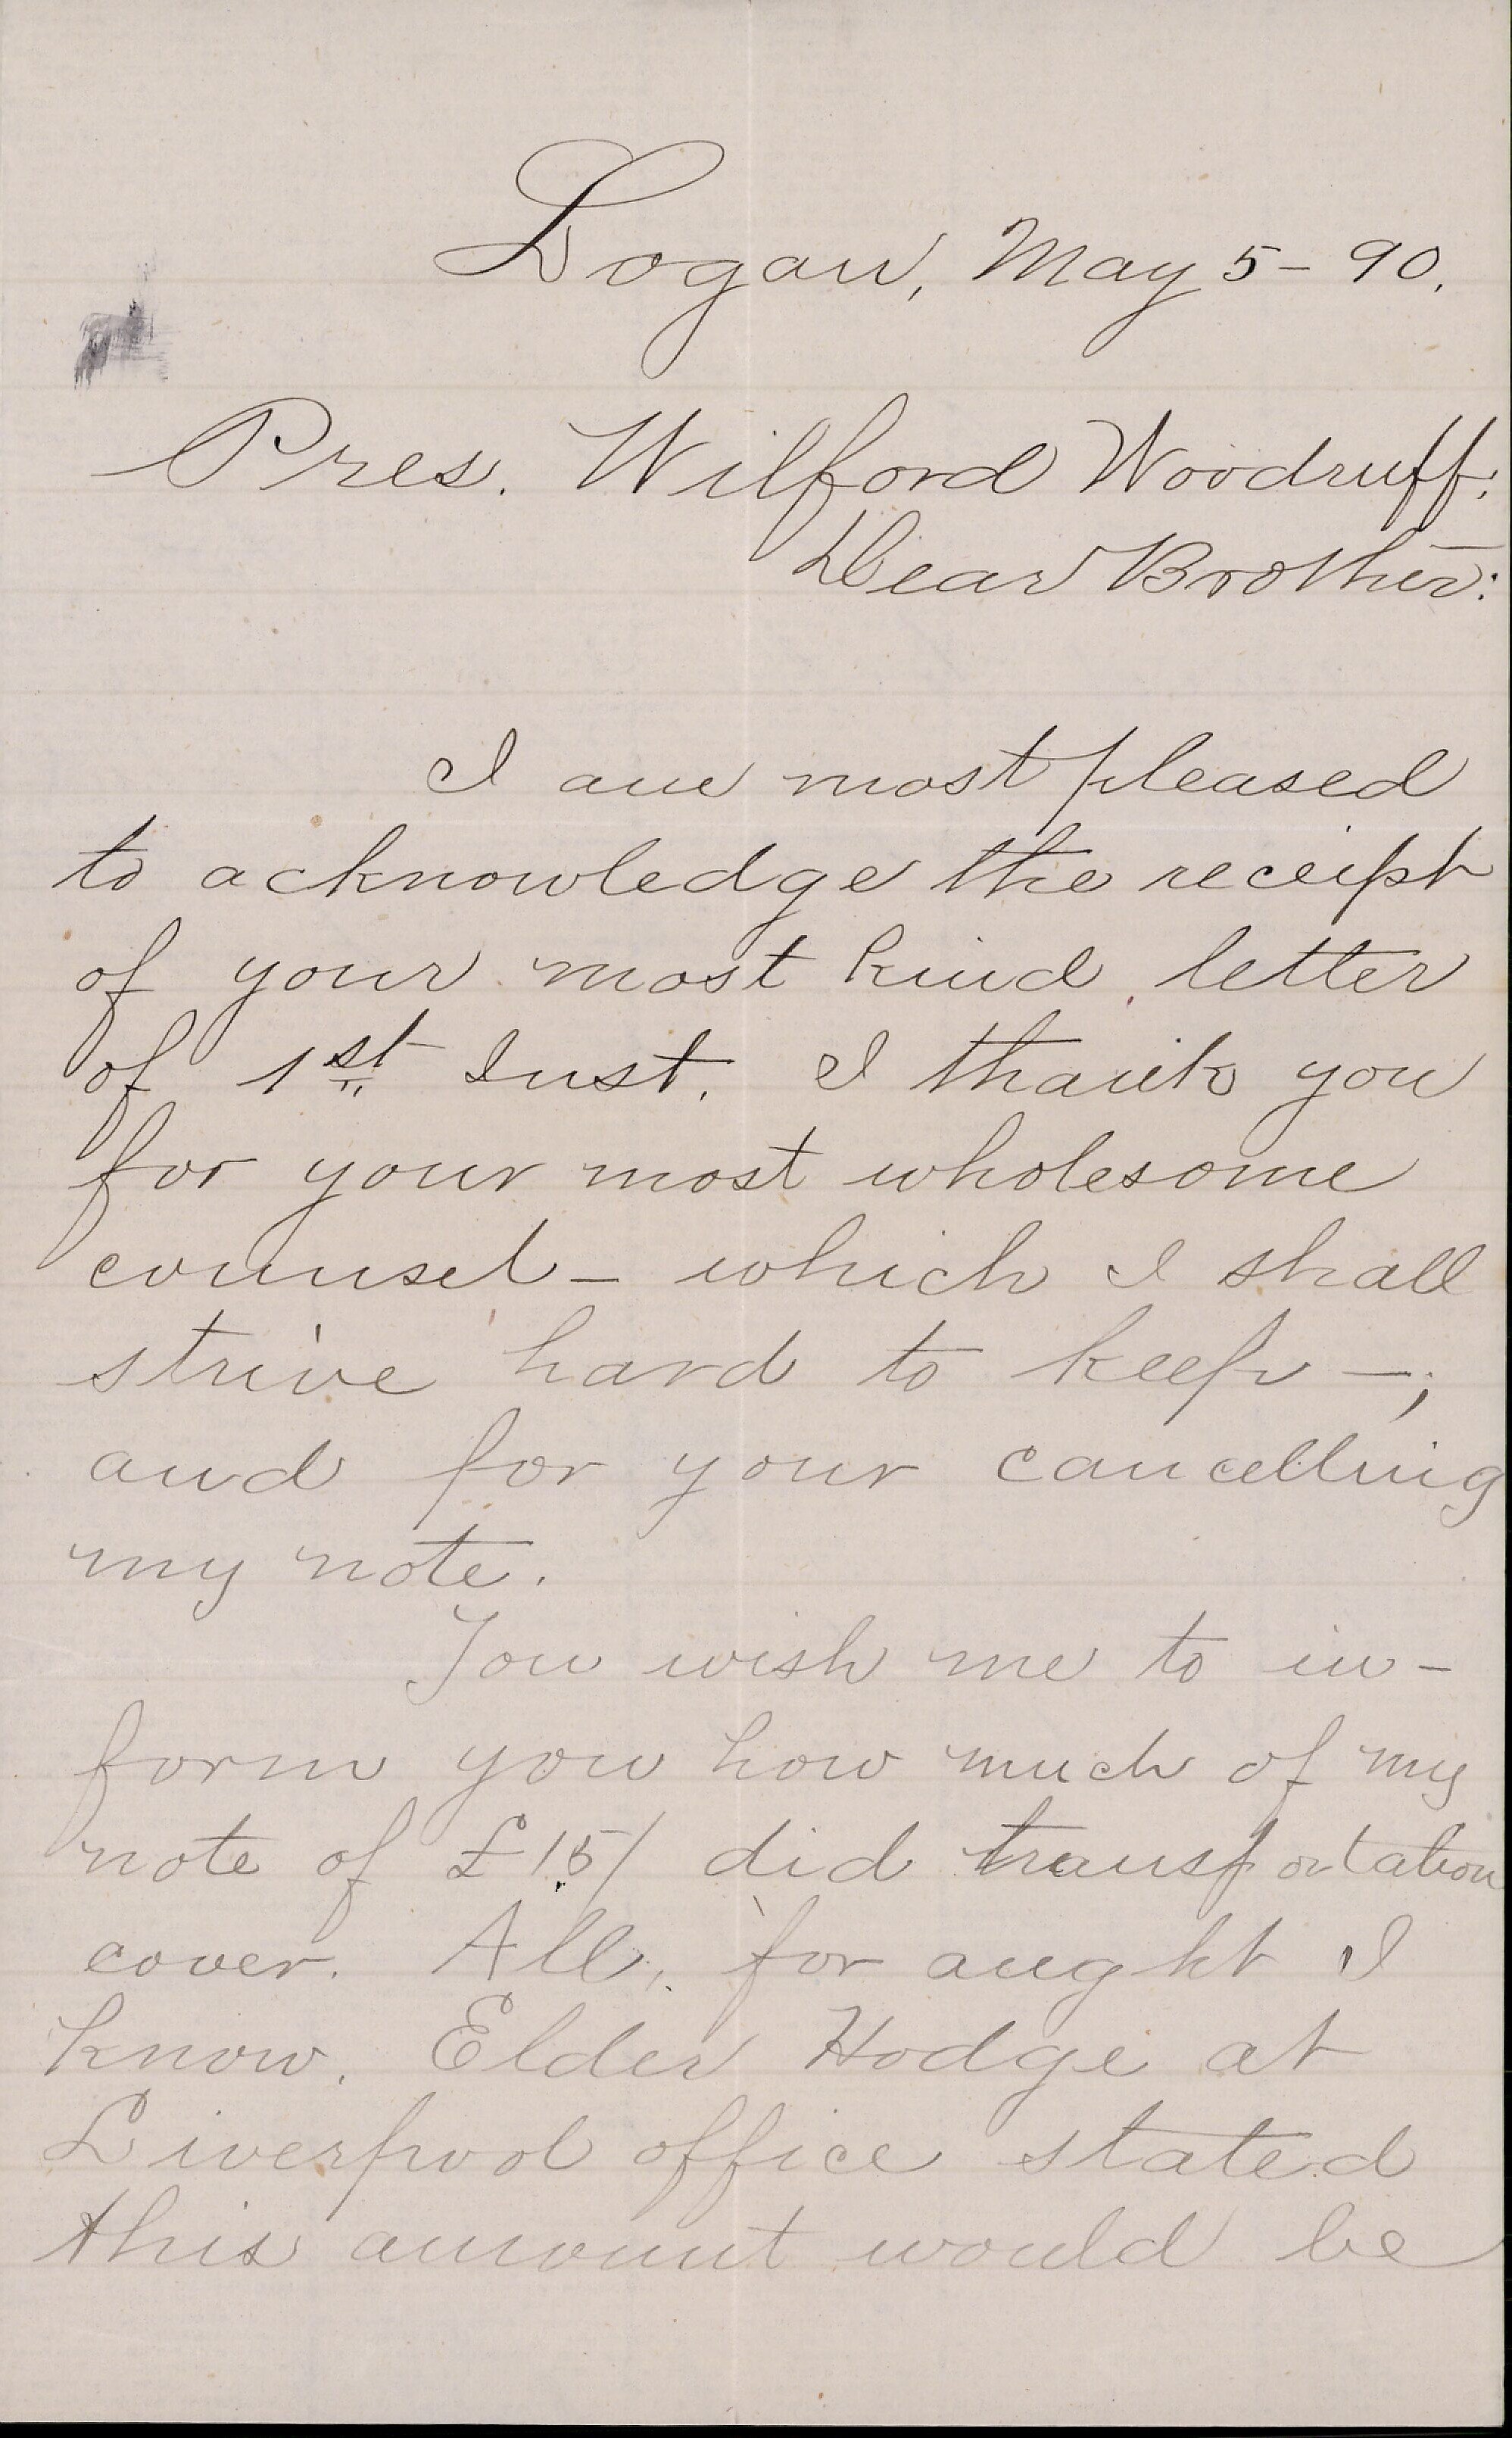 Logan, May 5 - 90.
Pres. Wilford Woodruff:
Dear Brother:
I am most pleased
to acknowledge the receipt
of your most kind letter
of 1st Inst. I thank you
for your most wholesome
counsel - which I shall
strive hard to keep -;
and for your cancelling
my note.
You wish me to in-
form you how much of my
note of £15/ did transportation
cover. All, for aught I
know. Elder Hodge at
Liverpool office stated
this amount would be